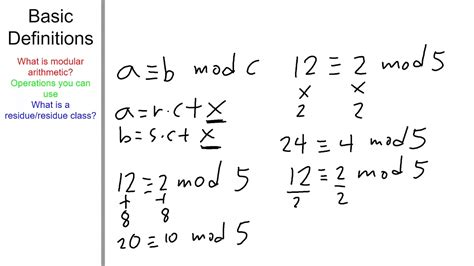 Basic
Definitions
What is modular
arithmetic?
Operations you can
use
What is a
residue/residue class?
a≡b mod c
a=r·c+x
b=s·c+x
12≡2 mod 5
+ +
8 8
20≡10 mod 5
12≡2 mod 5
x x
2 2
24≡4 mod 5
12≡2 mod 5
2 2